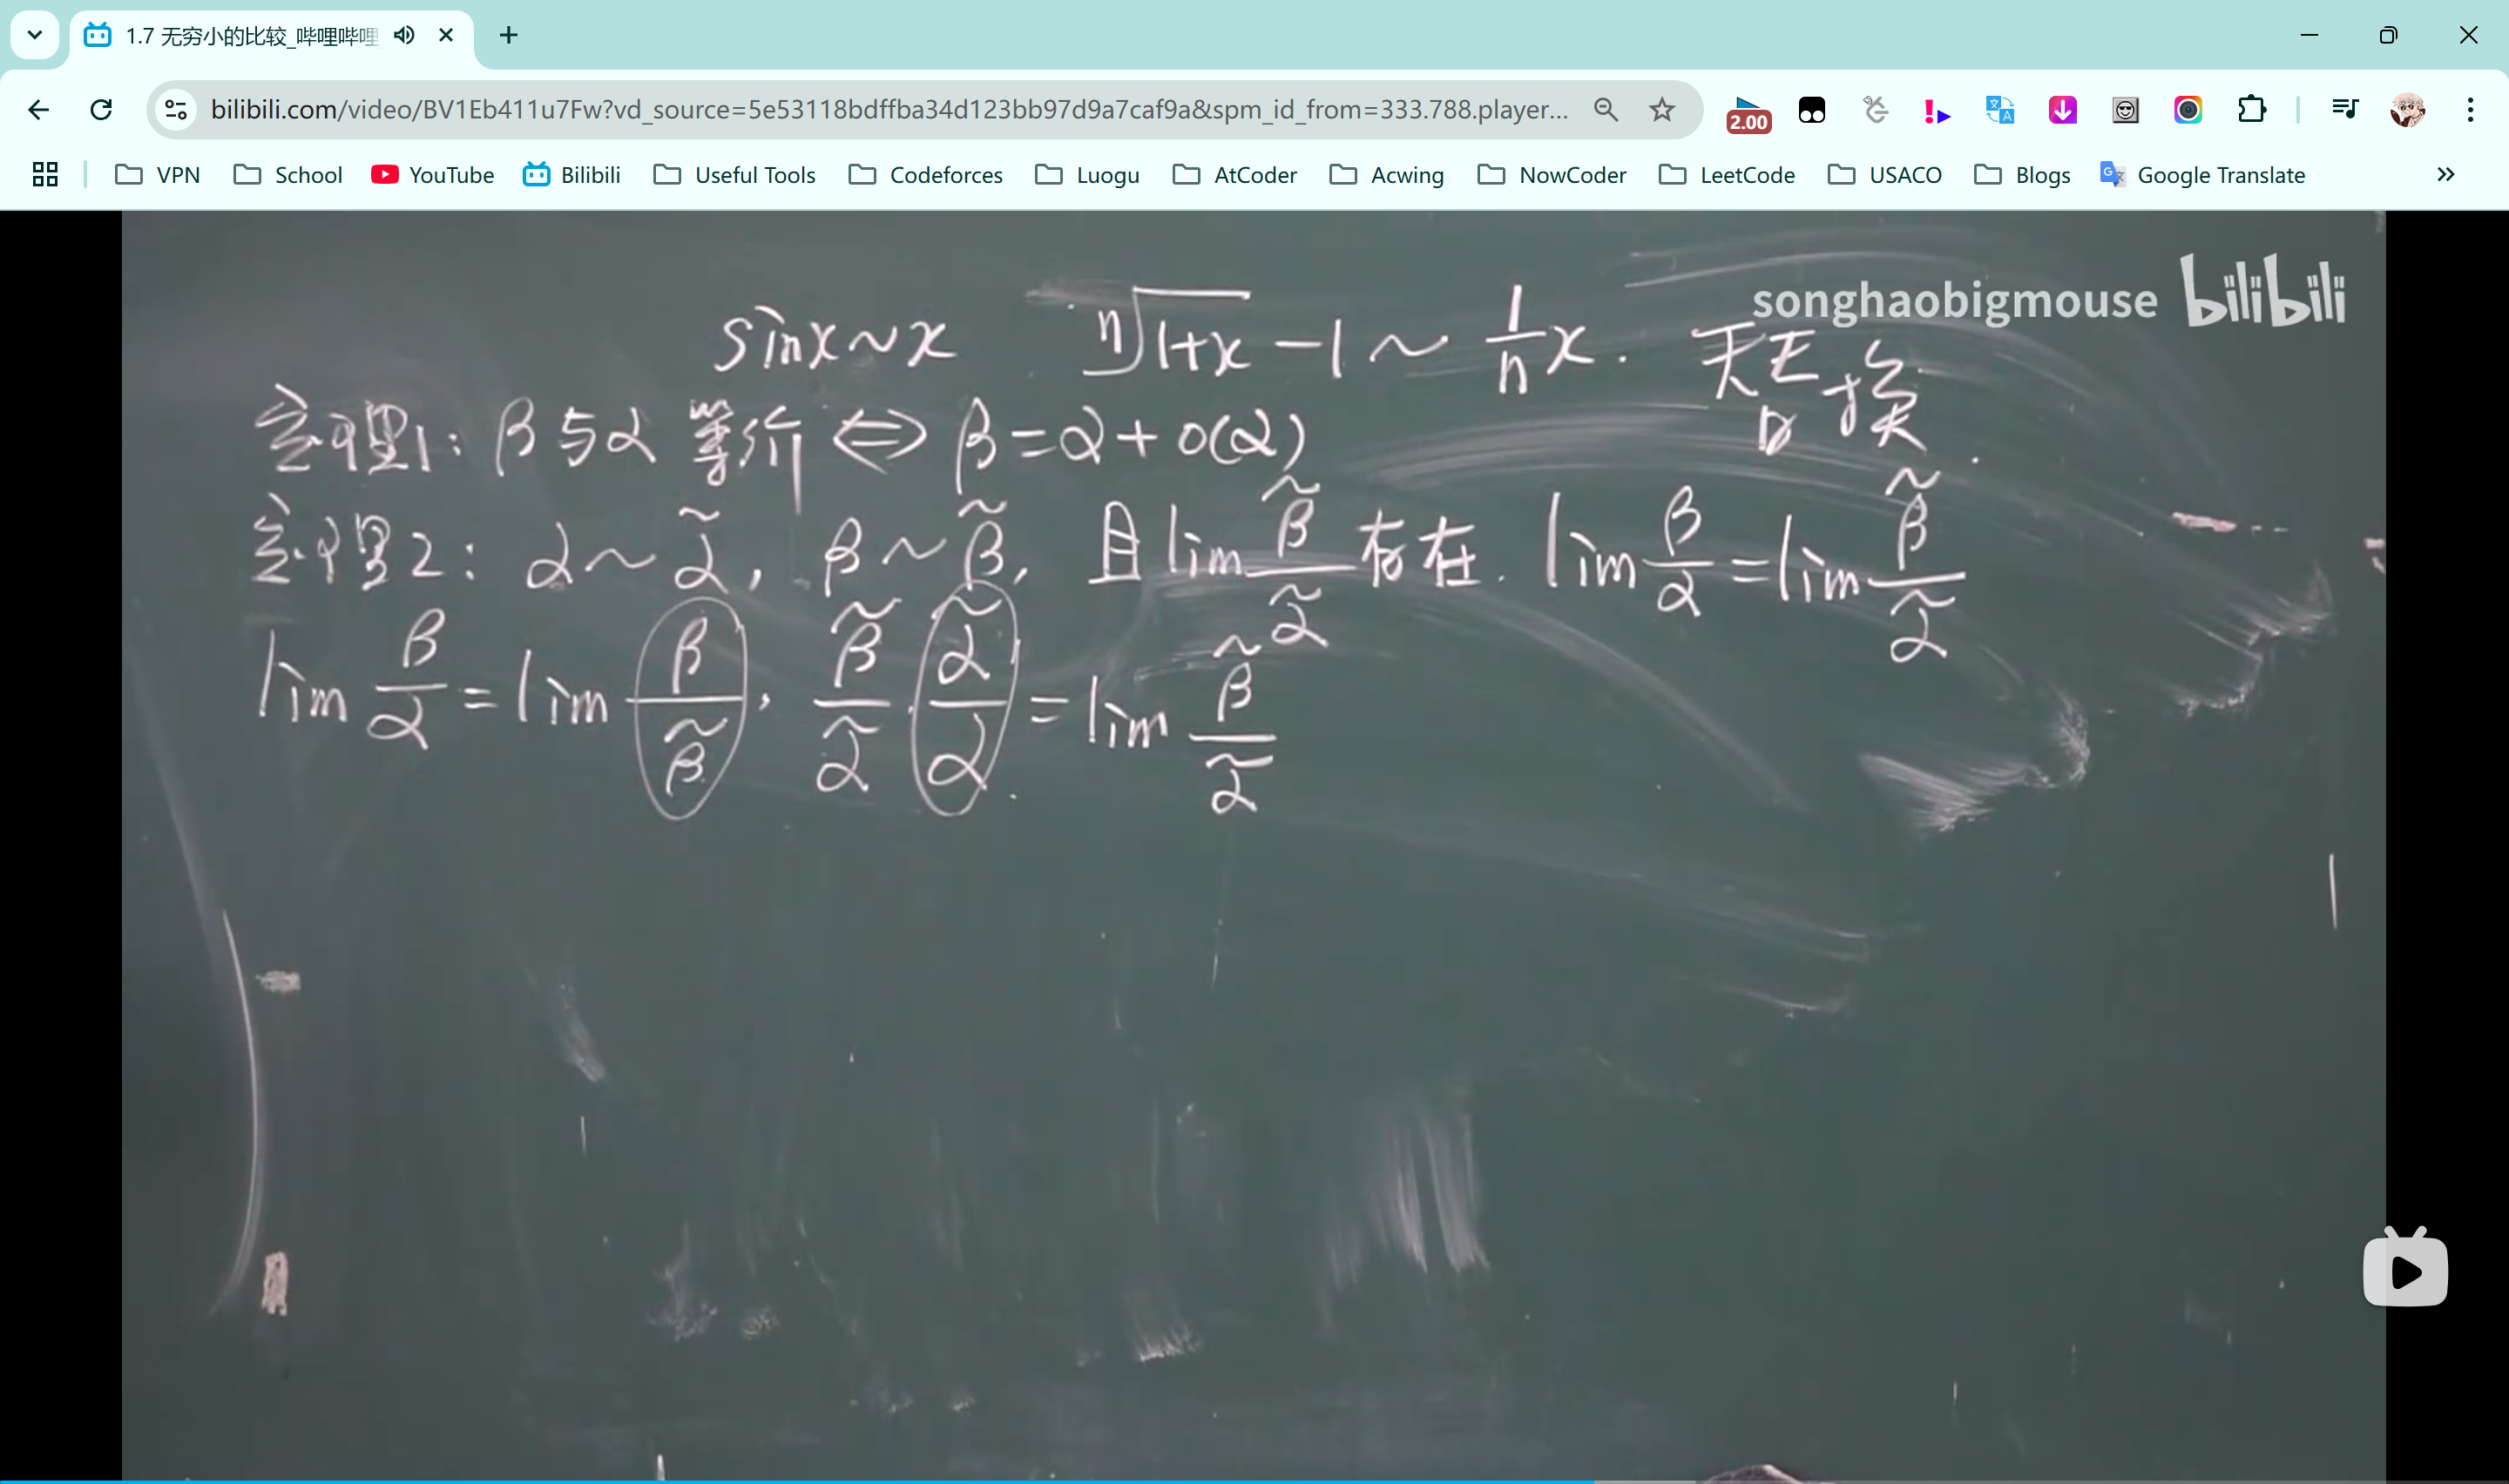 1.7 无穷小的比较_哔哩哔哩
bilibili.com/video/BV1Eb411u7Fw?vd_source=5e53118bdffba34d123bb97d9a7caf9a&spm_id_from=333.788.player...
2.00
VPN School YouTube Bilibili Useful Tools Codeforces Luogu AtCoder Acwing NowCoder LeetCode USACO Blogs Google Translate
songhaobigmouse bilibili
sinx~x ⁿ√(1+x) -1 ~ 1/n x.
定理1: β与α 等价 ⇔ β=α+o(α)
定理2: α~α̃, β~β̃, 且 lim β̃/α̃ 存在. lim β/α = lim β̃/α̃
lim β/α = lim β/β̃ · β̃/α̃ · α̃/α = lim β̃/α̃